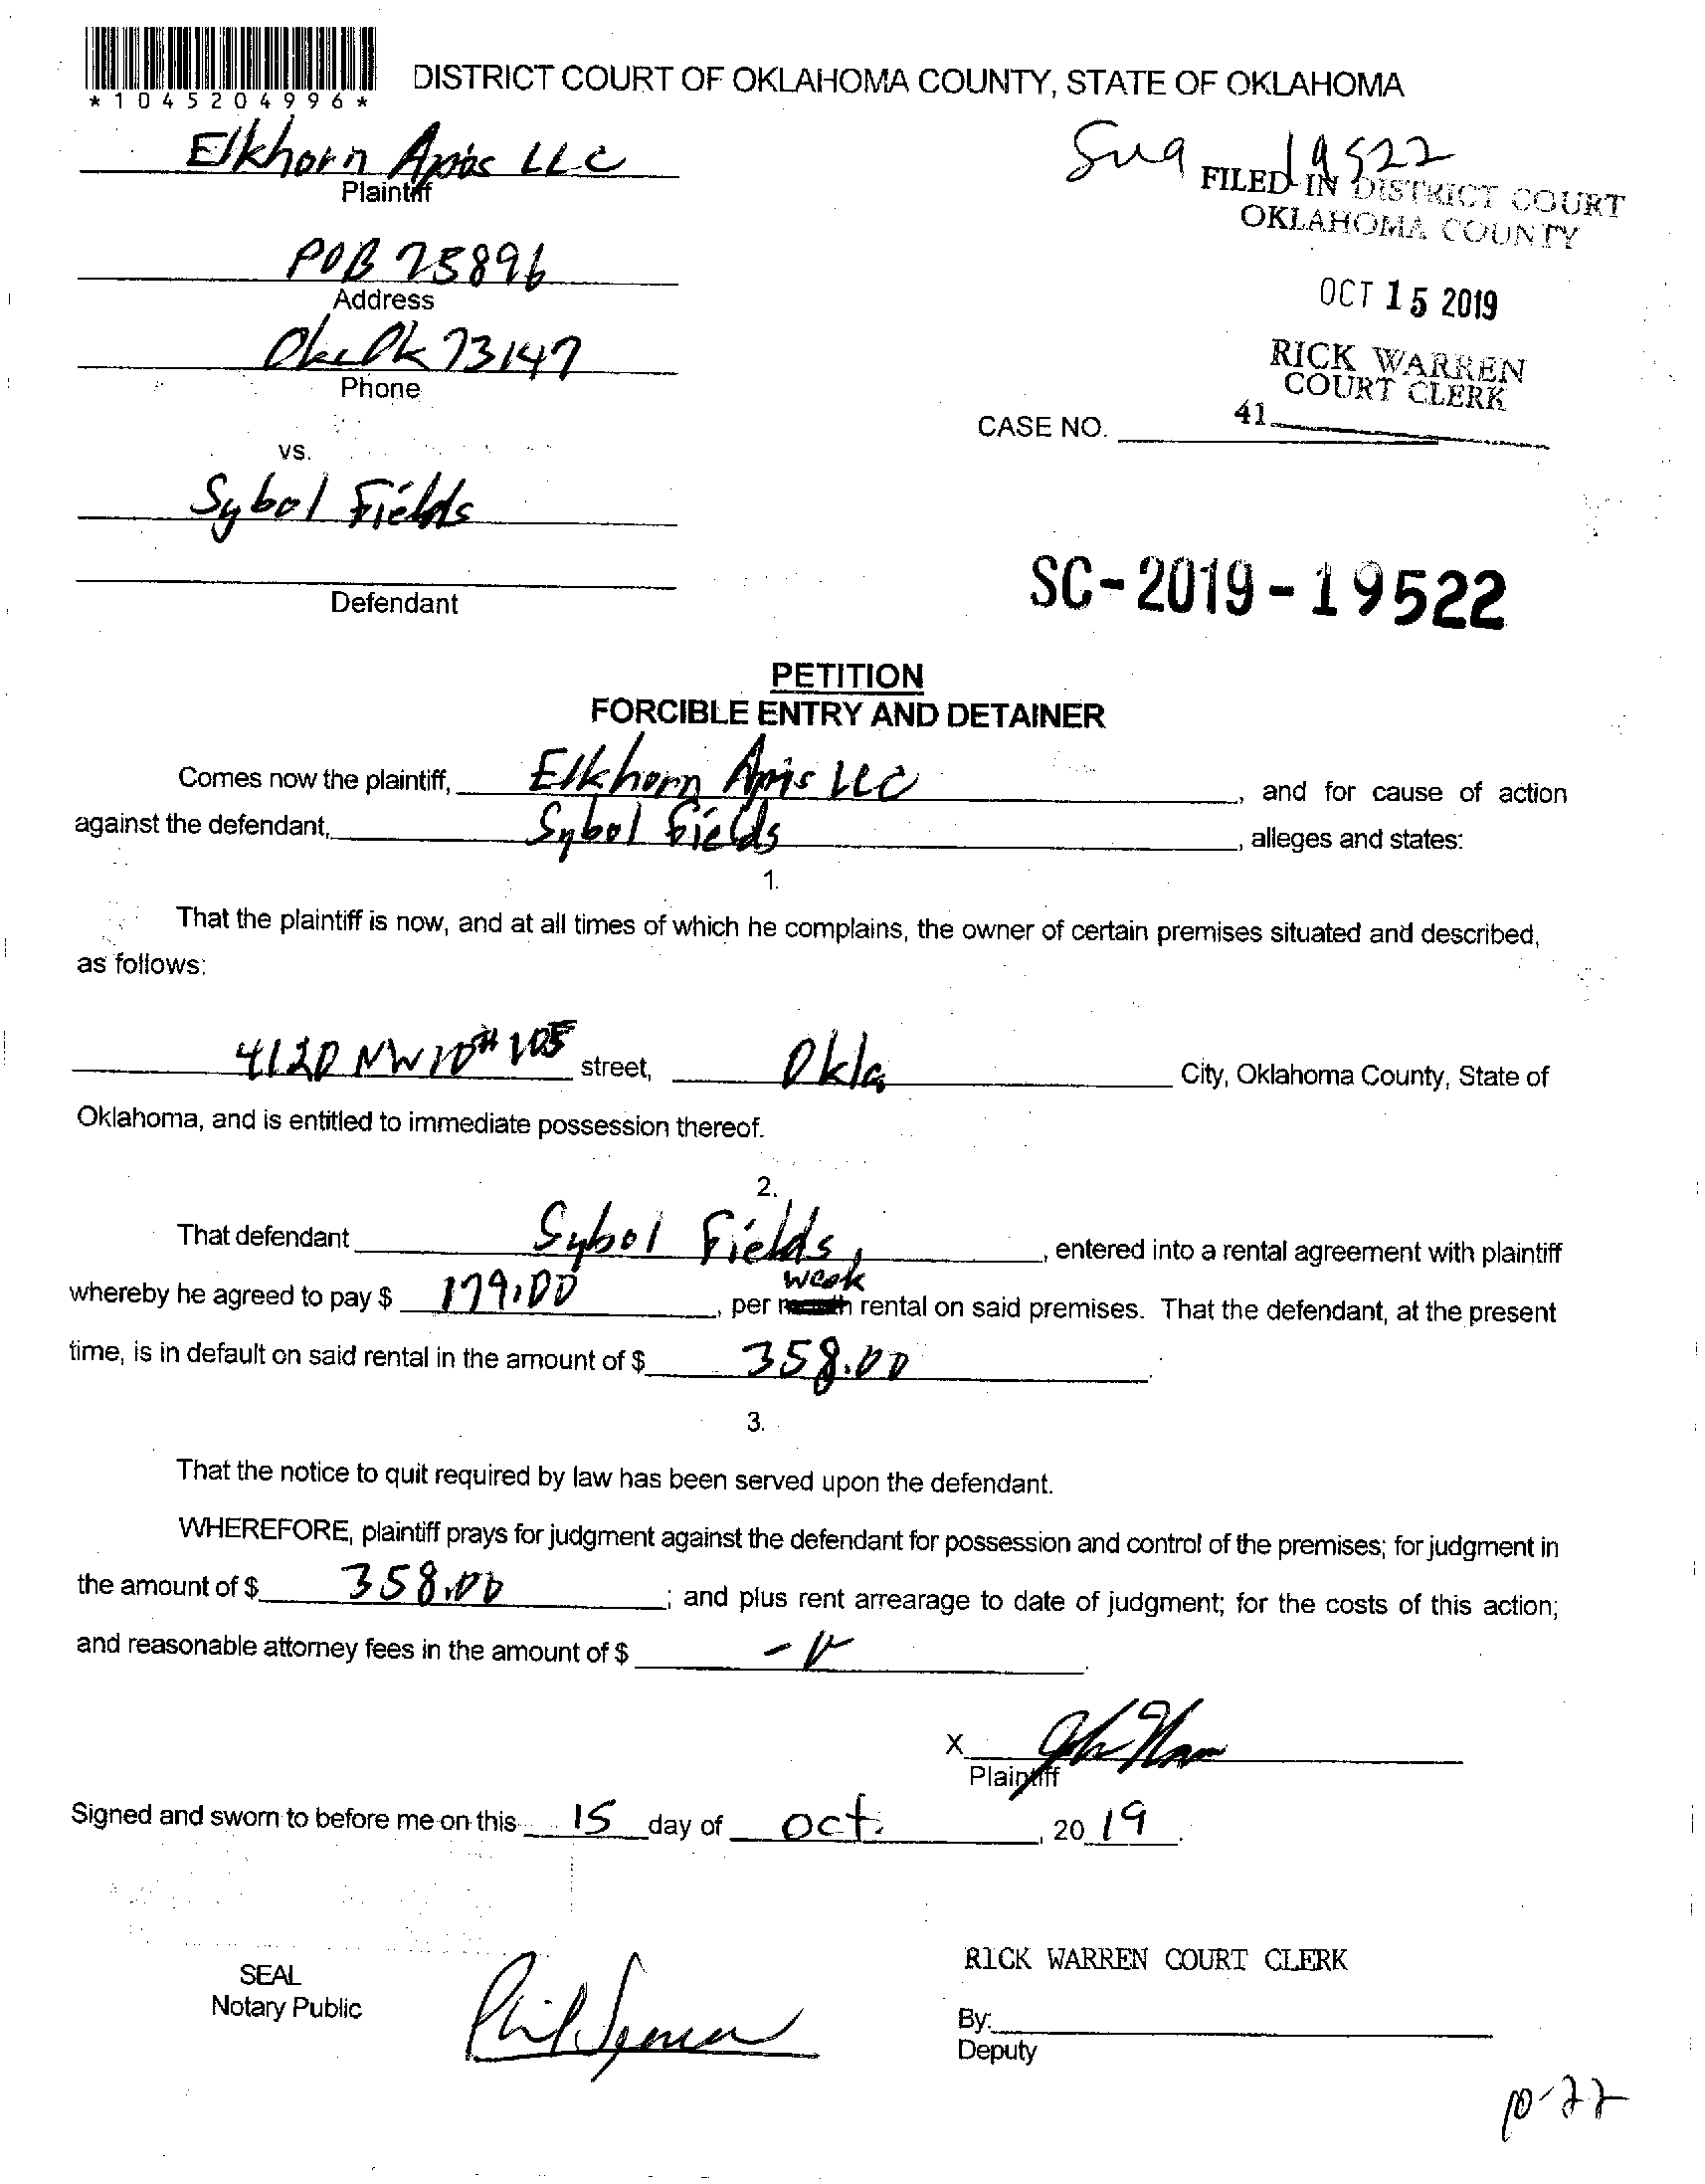 *1045204996*
DISTRICT COURT OF OKLAHOMA COUNTY, STATE OF OKLAHOMA
Elkhorn LLC
Plaintiff
19522
FILED IN DISTRICT COURT
OKLAHOMA COUNTY
POB 25896
Address
OCT 15 2019
73147
Phone
RICK WARREN
COURT CLERK
41
CASE NO.
vs.
Sybol Fields
SC-2019-19522
Defendant
PETITION
FORCIBLE ENTRY AND DETAINER
Comes now the plaintiff, Elkhorn LLC, and for cause of action
against the defendant, Sybol Fields, alleges and states:
1.
That the plaintiff is now, and at all times of which he complains, the owner of certain premises situated and described,
as follows:
4120 NW 10 # 105 street, Okla City, Oklahoma County, State of
Oklahoma, and is entitled to immediate possession thereof.
2.
That defendant Sybol Fields, entered into a rental agreement with plaintiff
week
whereby he agreed to pay $ 179.00, per month rental on said premises. That the defendant, at the present
time, is in default on said rental in the amount of $ 358.00.
3.
That the notice to quit required by law has been served upon the defendant.
WHEREFORE, plaintiff prays for judgment against the defendant for possession and control of the premises; for judgment in
the amount of $ 358.00; and plus rent arrearage to date of judgment; for the costs of this action;
and reasonable attorney fees in the amount of $
X
Plaintiff
Signed and sworn to before me on this 15 day of Oct., 2019.
SEAL
Notary Public
RICK WARREN COURT CLERK
By:
Deputy
10-22